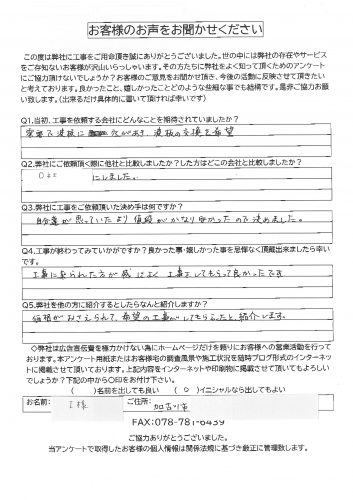 お客様のお声をお聞かせください
この度は弊社に工事をご用命頂き誠にありがとうございました。世の中には弊社の存在やサービス
をご存知ないお客様が沢山いらっしゃいます。その方たちに弊社をよく知って頂くためのアンケート
にご協力頂けないでしょうか？お客様のご意見をお聞かせ頂き、今後の活動に反映させて頂きたい
と考えております。良かったこと、嬉しかったことどのような些細な事でも結構です。是非ご協力お願
い致します。（出来るだけ具体的に書いて頂ければ幸いです）
Q1.当初、工事を依頼する会社にどんなことを期待されていましたか？
があき、波板の交換を希望
Q2.弊社にご依頼頂く際に他社と比較しましたか？した方はどこの会社と比較しましたか？
にしました。
Q3.弊社に工事をご依頼頂いた決め手は何ですか？
自分達が思っていたより値段がかなり安かったので決めました。
Q4.工事が終わってみていかがですか？良かった事・嬉しかった事を忌憚なく頂戴出来ましたら幸い
です。
工事に来られた方が感じよく工事をしてもらって良かったです
Q5.弊社を他の方に紹介するとしたらなんと紹介しますか？
価格がおさえられて、希望の工事がしてもらえたと紹介します。
◇弊社は広告宣伝費を極力かけない為にホームページだけを頼りにお客様への営業活動を行って
おります。本アンケート用紙またはお客様宅の調査風景や施工状況を随時ブログ形式のインターネッ
トに掲載させて頂いております。上記内容をインターネットや印刷物に掲載させて頂いてもよろしい
でしょうか？下記の中から〇印をお付け下さい。
（　　）名前を出しても良い　（ ○ ）イニシャルなら出してもよい
お名前: I様　ご住所: 加古川市
FAX:078-781-6439
ご協力ありがとうございました。
当アンケートで取得したお客様の個人情報は関係法規に基づき厳正に管理致します。